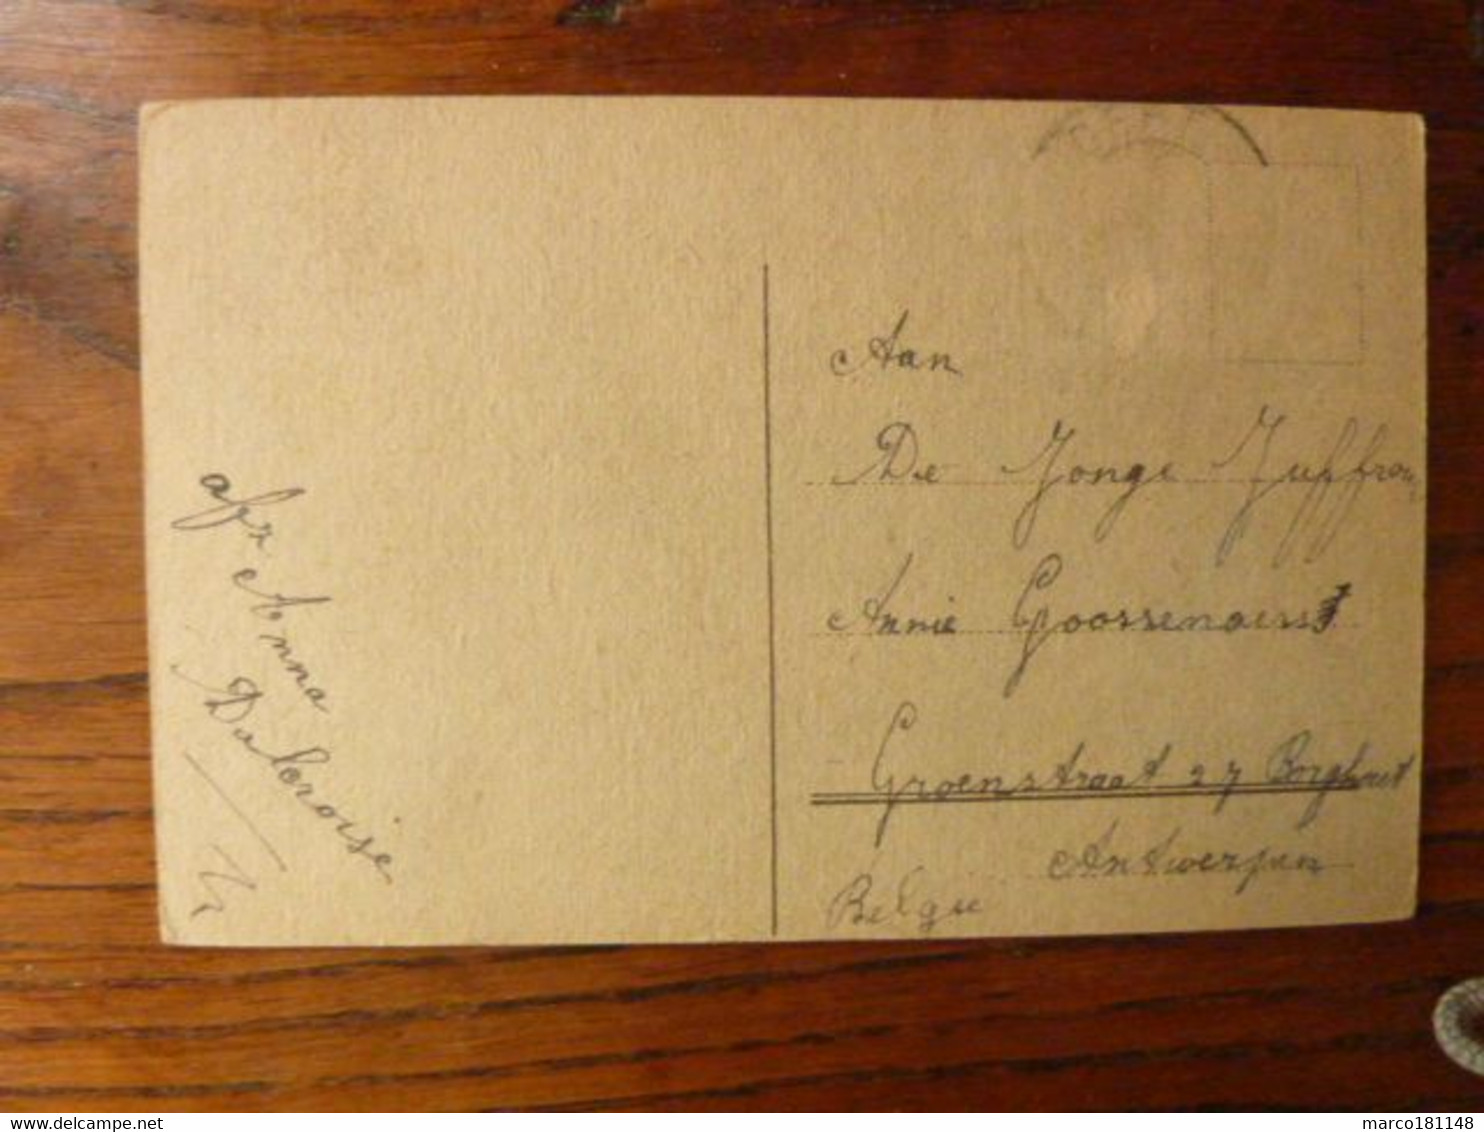 afz
Anna
Daleroise
Aan
De Jonge Juffrou
Annie Goossenaerts
Groenstraat 27 Borghout
Antwerpen
Belgie
www.delcampe.net
marco181148